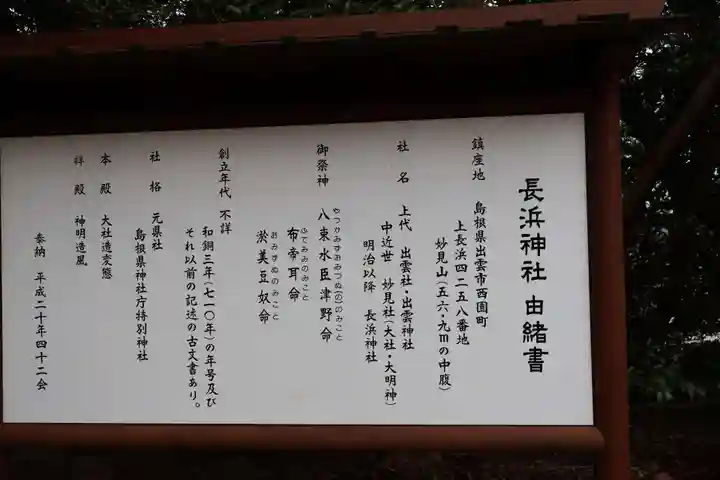 長浜神社 由緒書
鎮座地 島根県出雲市西園町
上長浜四二五八番地
妙見山(五六・九mの中腹)
社名 上代 出雲社・出雲神社
中近世 妙見社(大社・大明神)
明治以降 長浜神社
御祭神 八束水臣津野命
やつかみずおみづぬ(の)のみこと
布帝耳命
ふてみみのみこと
淤美豆奴命
おみずぬのみこと
創立年代 不詳
和銅三年(七一〇年)の年号及び
それ以前の記述の古文書あり。
社格 元県社
島根県神社庁特別神社
本殿 大社造変態
拝殿 神明造風
奉納 平成二十年四十二会